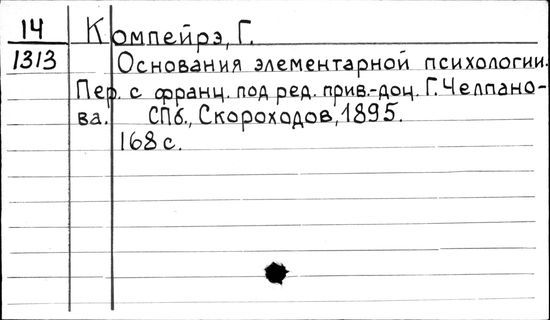 14 Компейрэ, Г.
1313 Основания элементарной психологии.
Пер. с франц. под ред. прив.-доц. Г. Челпано-
ва. СПб., Скороходов, 1895.
168 с.